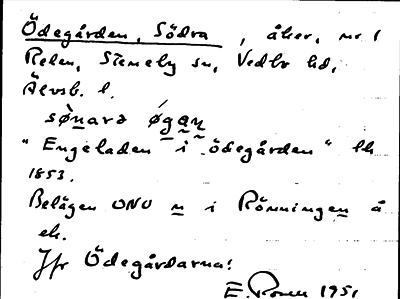 Ödegården, Södra, åker, nr 1
Reden, Steneby sn, Vedbo hd,
Älvsb. l.
sønarə øgaṇ
"Engeladen i ödegården" lh
1853.
Belägen ONO n i Rönningen å
ek.
Jfr Ödegårdarna!
E. 1951